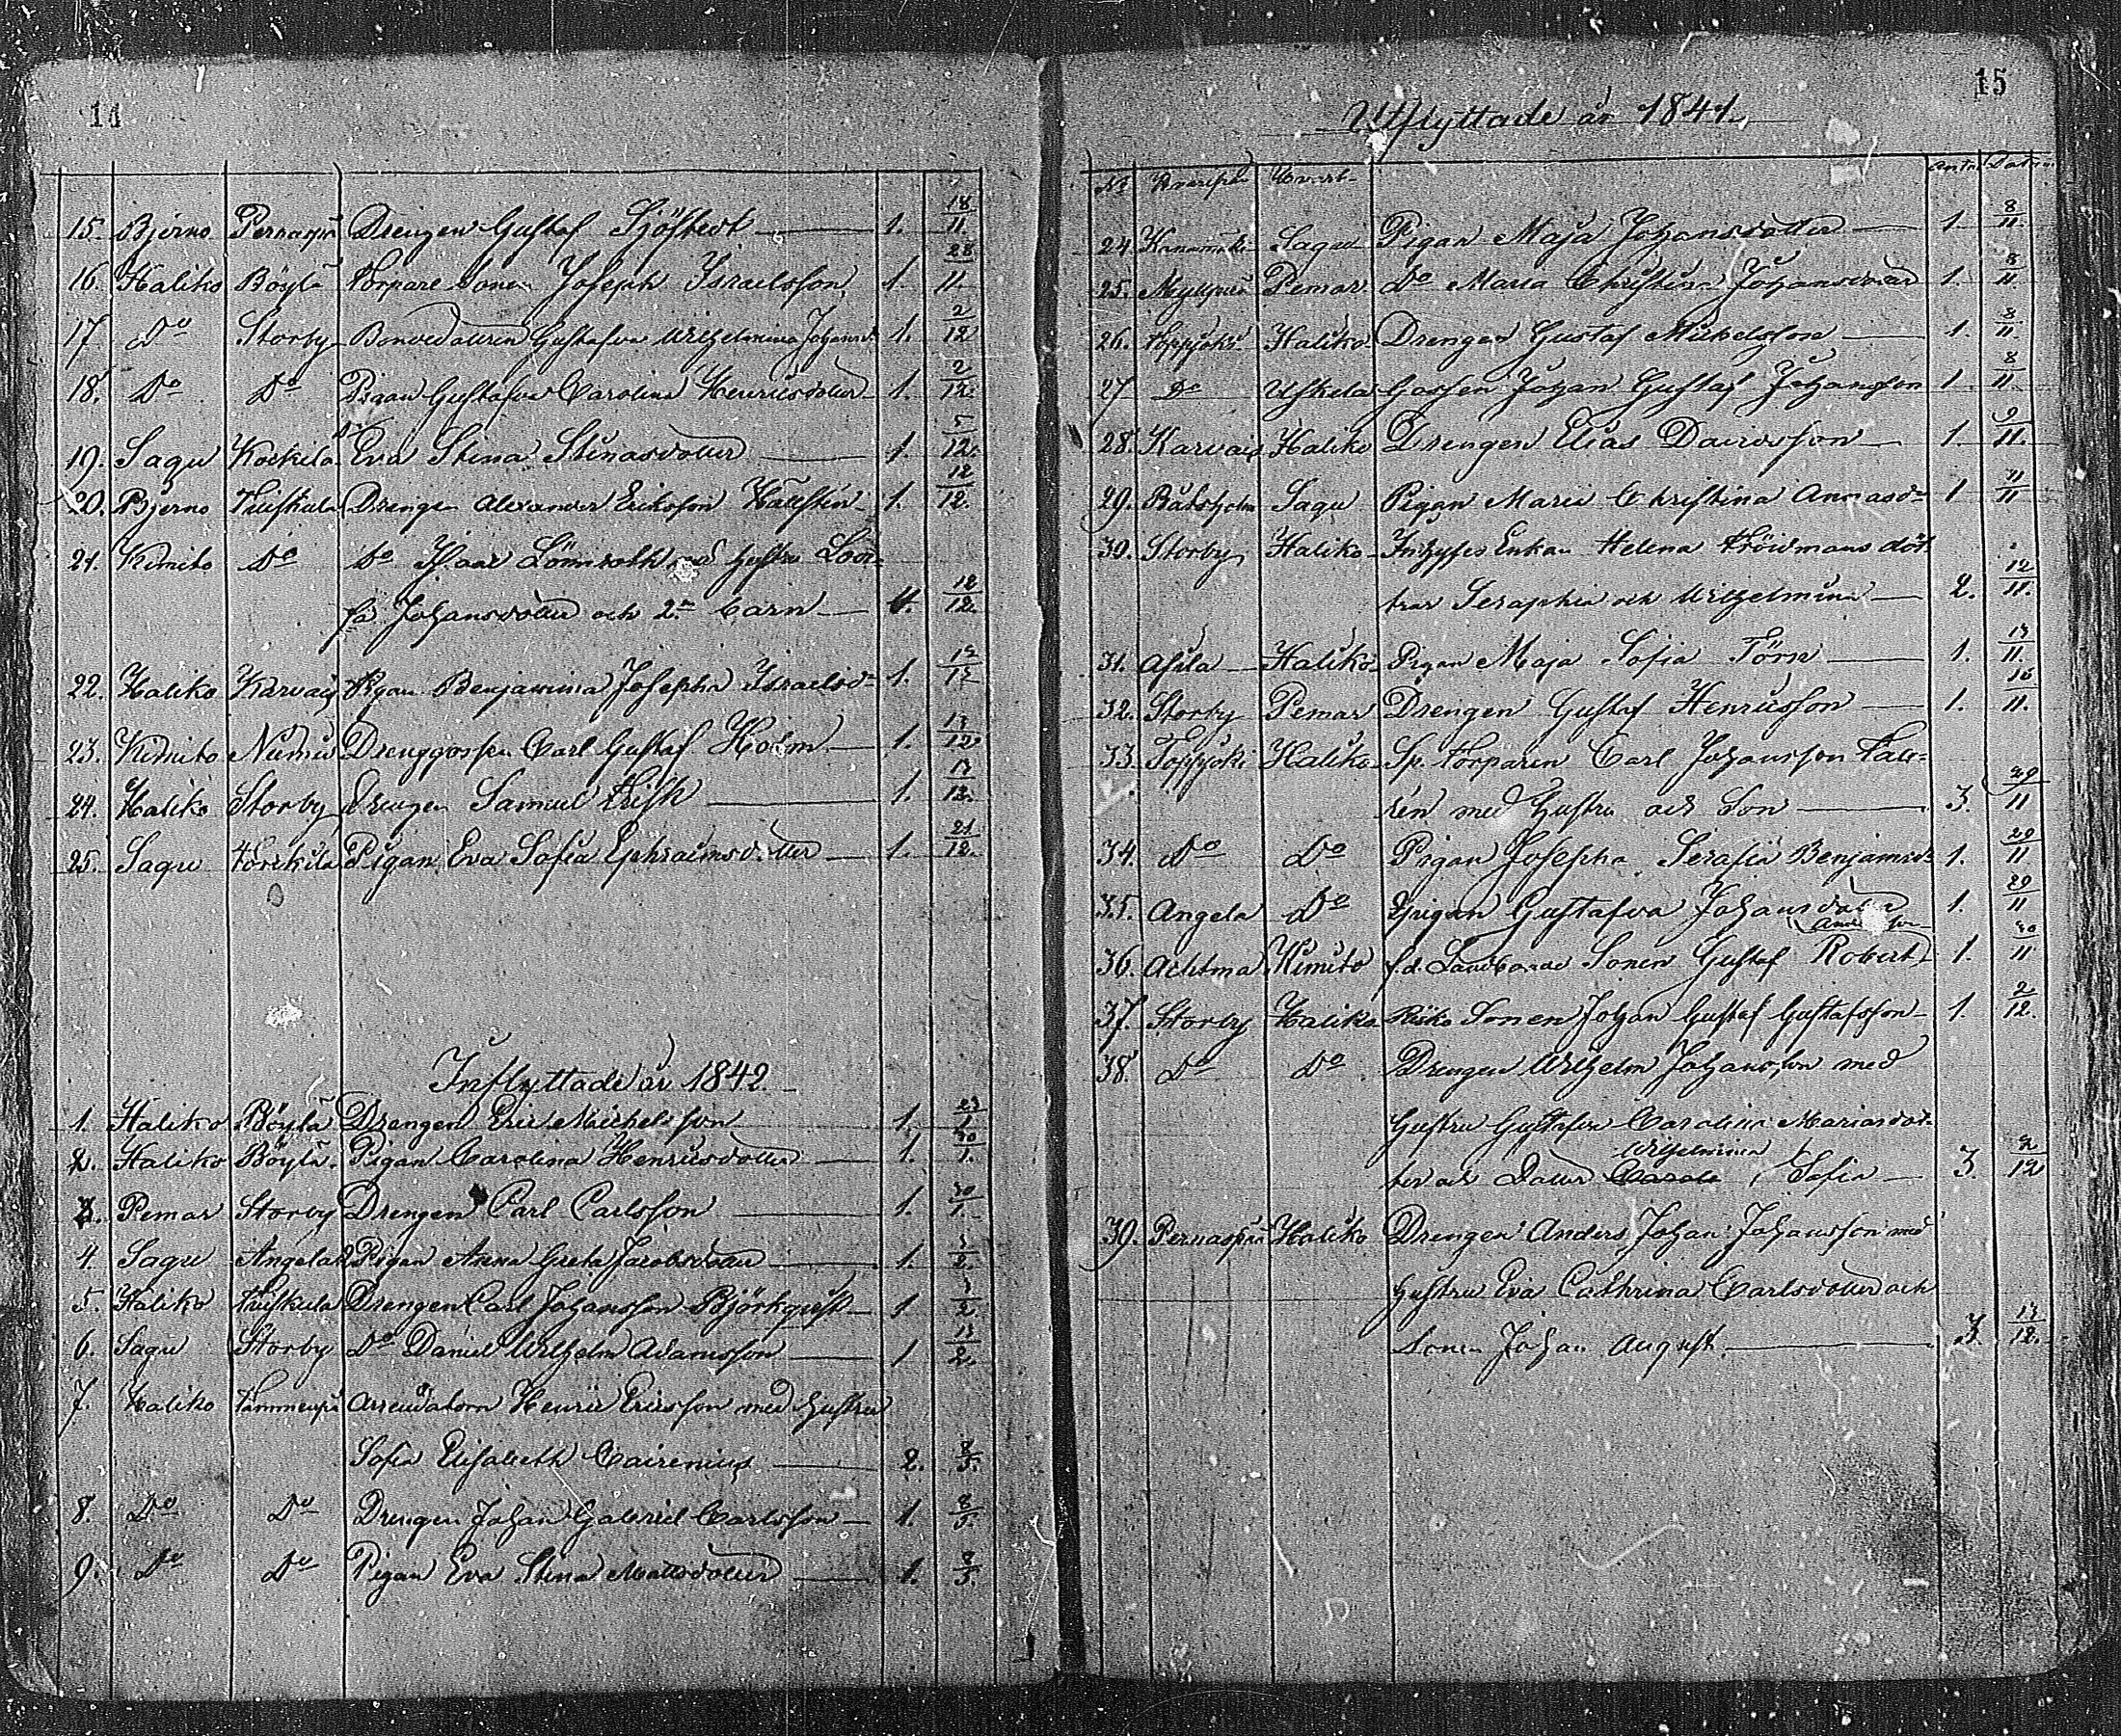 14
15. Bjerno Pernaspä Drengen Gustaf Sjöstedt 1. 18/11.
16. Haliko Böylä Torpare Sonen Joseph Israelsson 1. 28/11.
17 Do Storby Bondedottren Gustafva Wilhelmina Johansd. 1. 2/12
18. Do Do Pigan Gustafva Carolina Henricsdotter 1. 2/12.
19. Sagu Kockila Do Eva Stina Stinasdotter 1. 5/12.
20. Bjerno Truskula Drengen Alexander Eriksson Hallstén 1. 12/12.
21. Kimito Do Do Isaac Lönnroth med hustru Lovi-
sa Johansdotter och 2ne barn 4. 12/12.
22. Haliko Karvais Pigan Benjamina Josepha Israelsdr 1. 12/12
23. Kimito Numis Drenggossen Carl Gustaf Holm 1. 13/12
24. Haliko Storby Drengen Samuel Frisk 1. 17/12.
25. Sagu Torkila Pigan Eva Sofia Ephraimsdotter 1. 21/12.
Inflyttade år 1842.
1. Haliko Böylä Drengen Eric Michelsson 1. 23/1
2. Haliko Böylä. Pigan Carolina Henricsdotter 1. 30/1.
3. Pemar Storby Drengen Carl Carlsson 1. 30/1.
4. Sagu Angela Pigan Anna Greta Jacobsdotter 1. 3/2.
5. Haliko Truskula Drengen Carl Johansson Björkqvist 1 3/2
6. Sagu Storby Do Daniel Wilhelm Adamsson 1 13/2.
7. Haliko Tammenpä Arrendatorn Henric Ericsson med hustru
Sofia Elisabeth Cairenius 2. 8/3.
8. Do Do Drengen Johan Gabriel Carlsson 1. 8/3.
9. Do Do Pigan Eva Stina Mattsdotter 1. 8/3.
15
Utflyttade år 1841.
No Hvarifrån Hvart Antal Datum
24. Sagu Pigan Maja Johansdotter 1. 8/11.
25. Pemar Do Maria Christina Johansdotter 1. 8/11.
26. Toppjoki Haliko Drengen Gustaf Mickelsson 1. 8/11.
27 Do Uskela Gossen Johan Gustaf Johansson 1 8/11
28. Karvais Haliko Drengen Elias Davidsson 1 9/11.
29. Båtsholm Sagu Pigan Maria Christina Annasdr 1 11/11
30. Storby Haliko Inhyses Enkan Helena Fröidmans döt-
trar Seraphia och Wilhelmina 2. 12/11.
31. Asila Haliko Pigan Maja Sofia Törn 1. 13/11.
32. Storby Pemar Drengen Gustaf Henricsson 1. 16/11.
33. Toppjoki Haliko Sp. Torparen Carl Johansson Fale-
rén med hustru och Son 3. 29/11
34. Do Do Pigan Josepha Serafia Benjamsdr 1. 29/11
35. Angela Do Pigan Gustafva Johansdotter 1. 29/11
36. Achtma Kimito f.d. Landbonde Sonen Gustaf Robert 1. 30/11
37. Storby Haliko Risko Sonen Johan Gustaf Gustafsson 1. 2/12.
38. Do Do Drengen Wilhelm Johansson med
Hustru Gustafva Carolina Mariasdot-
Wilhelmina
ter och Dotter Carola Sofia 3. 2/12
39. Pernaspää Haliko Drengen Anders Johan Johansson med
hustru Eva Cathrina Carlsdotter och
Sonen Johan August. 3. 13/12.